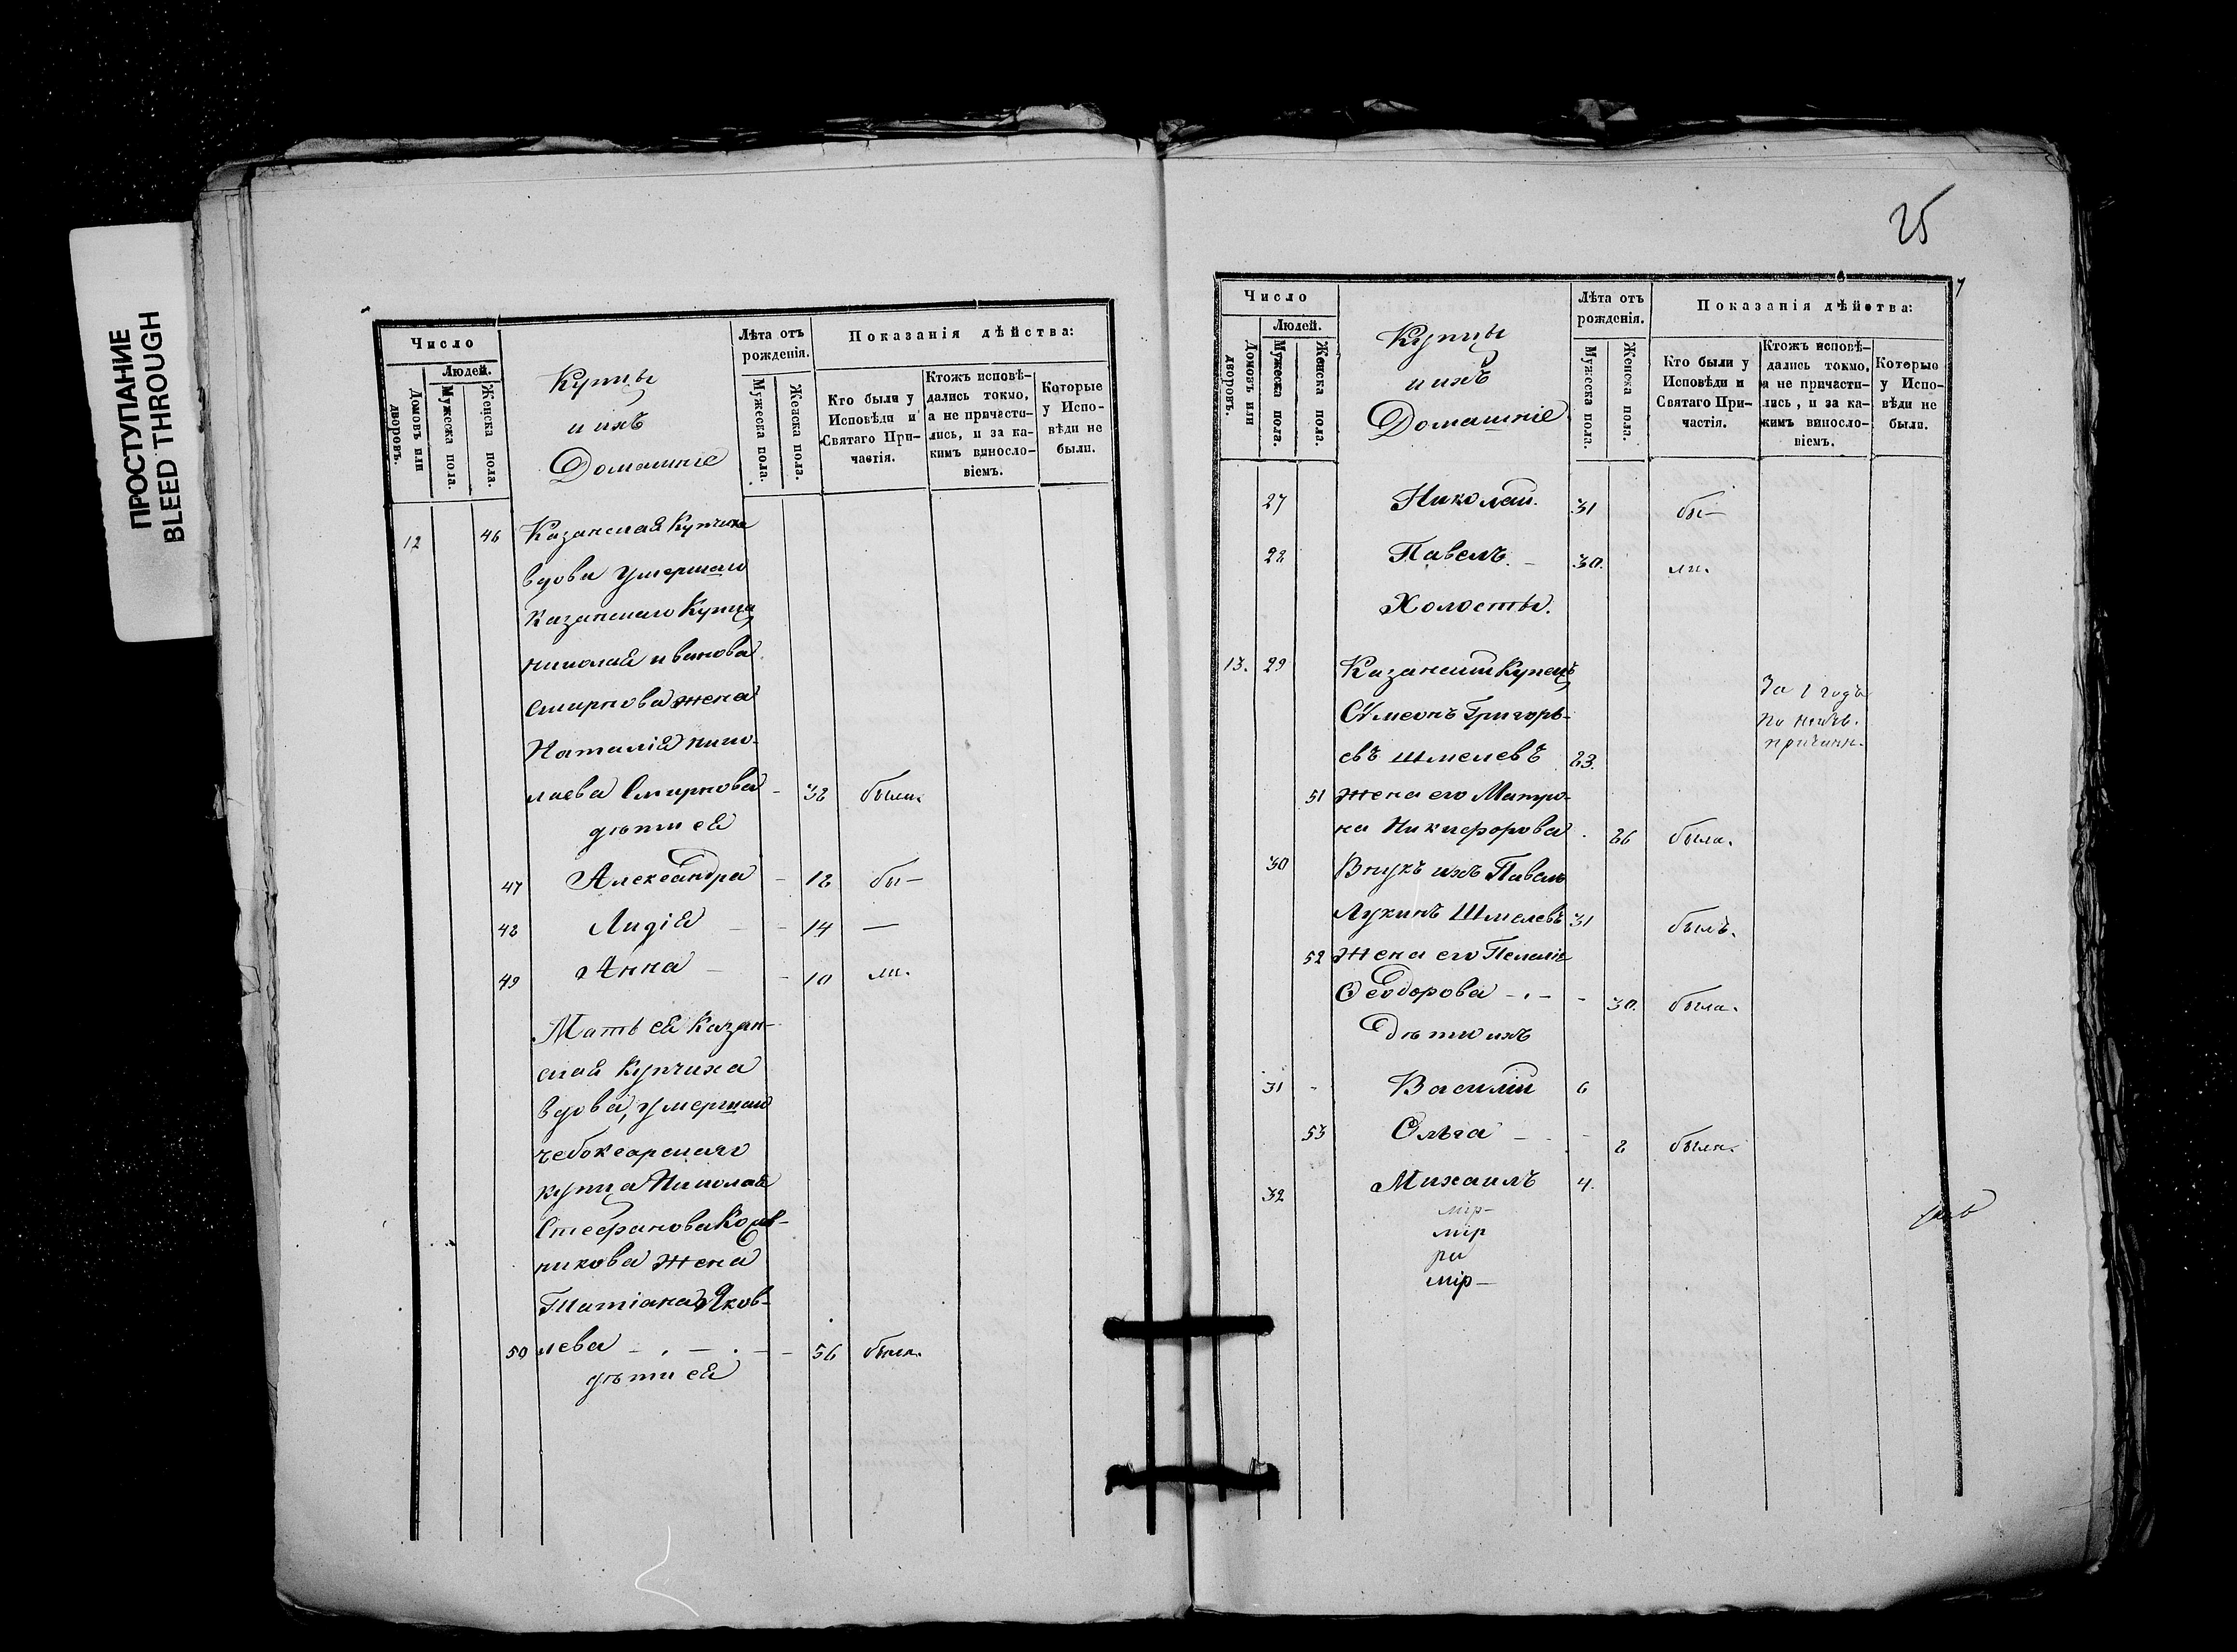 ПРОСТУПАНИЕ
BLEED THROUGH
Число
Людей.
Домовъ или дворовъ.
Мужеска пола.
Женска пола.
Купцы
и ихъ
Домашніе
Лѣта отъ рожденія.
Мужеска пола.
Женска пола.
Показанія дѣйства:
Кто были у Исповѣди и Святаго Причастія.
Ктожъ исповѣдались токмо, а не причастились, и за какимъ винословіемъ.
Которые у Исповѣди не были.
12 46 Казанская Купчиха
вдова умершаго
Казанскаго Купца
Николая Иванова
Смирнова жена
Наталія Нико-
лаева Смирнова - 38 была.
дѣти ея
47 Александра - 18 бы-
48 Лидія - - 14 —
49 Анна - - 10 ли.
Мать ея Казан-
ская Купчиха
вдова, умершаго
чебоксарскаго
купца Николая
Стефанова
никова жена
Татіана Яков-
50 лева - . - . - - 56 была.
дѣти ея
25
7
Число
Людей.
Домовъ или дворовъ.
Мужеска пола.
Женска пола.
Купцы
и ихъ
Домашніе
Лѣта отъ рожденія.
Мужеска пола.
Женска пола.
Показанія дѣйства:
Кто были у Исповѣди и Святаго Причастія.
Ктожъ исповѣдались токмо, а не причастились, и за какимъ винословіемъ.
Которые у Исповѣди не были.
27 Николай. 31 бы-
28 Павелъ. - 30. ли.
Холосты.
13. 29 Казанскій Купецъ
За 1 годъ
Сѵмеонъ Григорь-
по
евъ Шмелевъ 83.
51 жена его Матро-
на Никифорова . 86 была.
30 Внукъ ихъ Павелъ
Лукинъ Шмелевъ 31 былъ.
52 жена его Пелагія
Ѳеодорова - . - - 30. была.
Дѣти ихъ
31 - Василій 6
53 Ольга - . - 8 были.
32 Михаилъ 4.
мір-
мір
ра
мір-